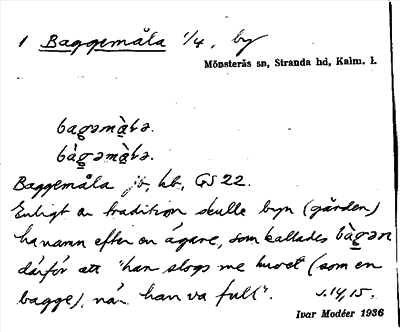 1 Baggemåla 1/4, by
Mönsterås sn, Stranda hd, Kalm. l.
bagəmà̱la.
bàgəmà̱la.
Baggemåla jb, kb, GS 22.
Enligt en tradition skulle byn (gården)
ha namn efter en ägare, som kallades bàgən
därför att "han slogs me huvet (som en
bagge), när han va full". s. 14, 15.
Ivar Modéer 1936